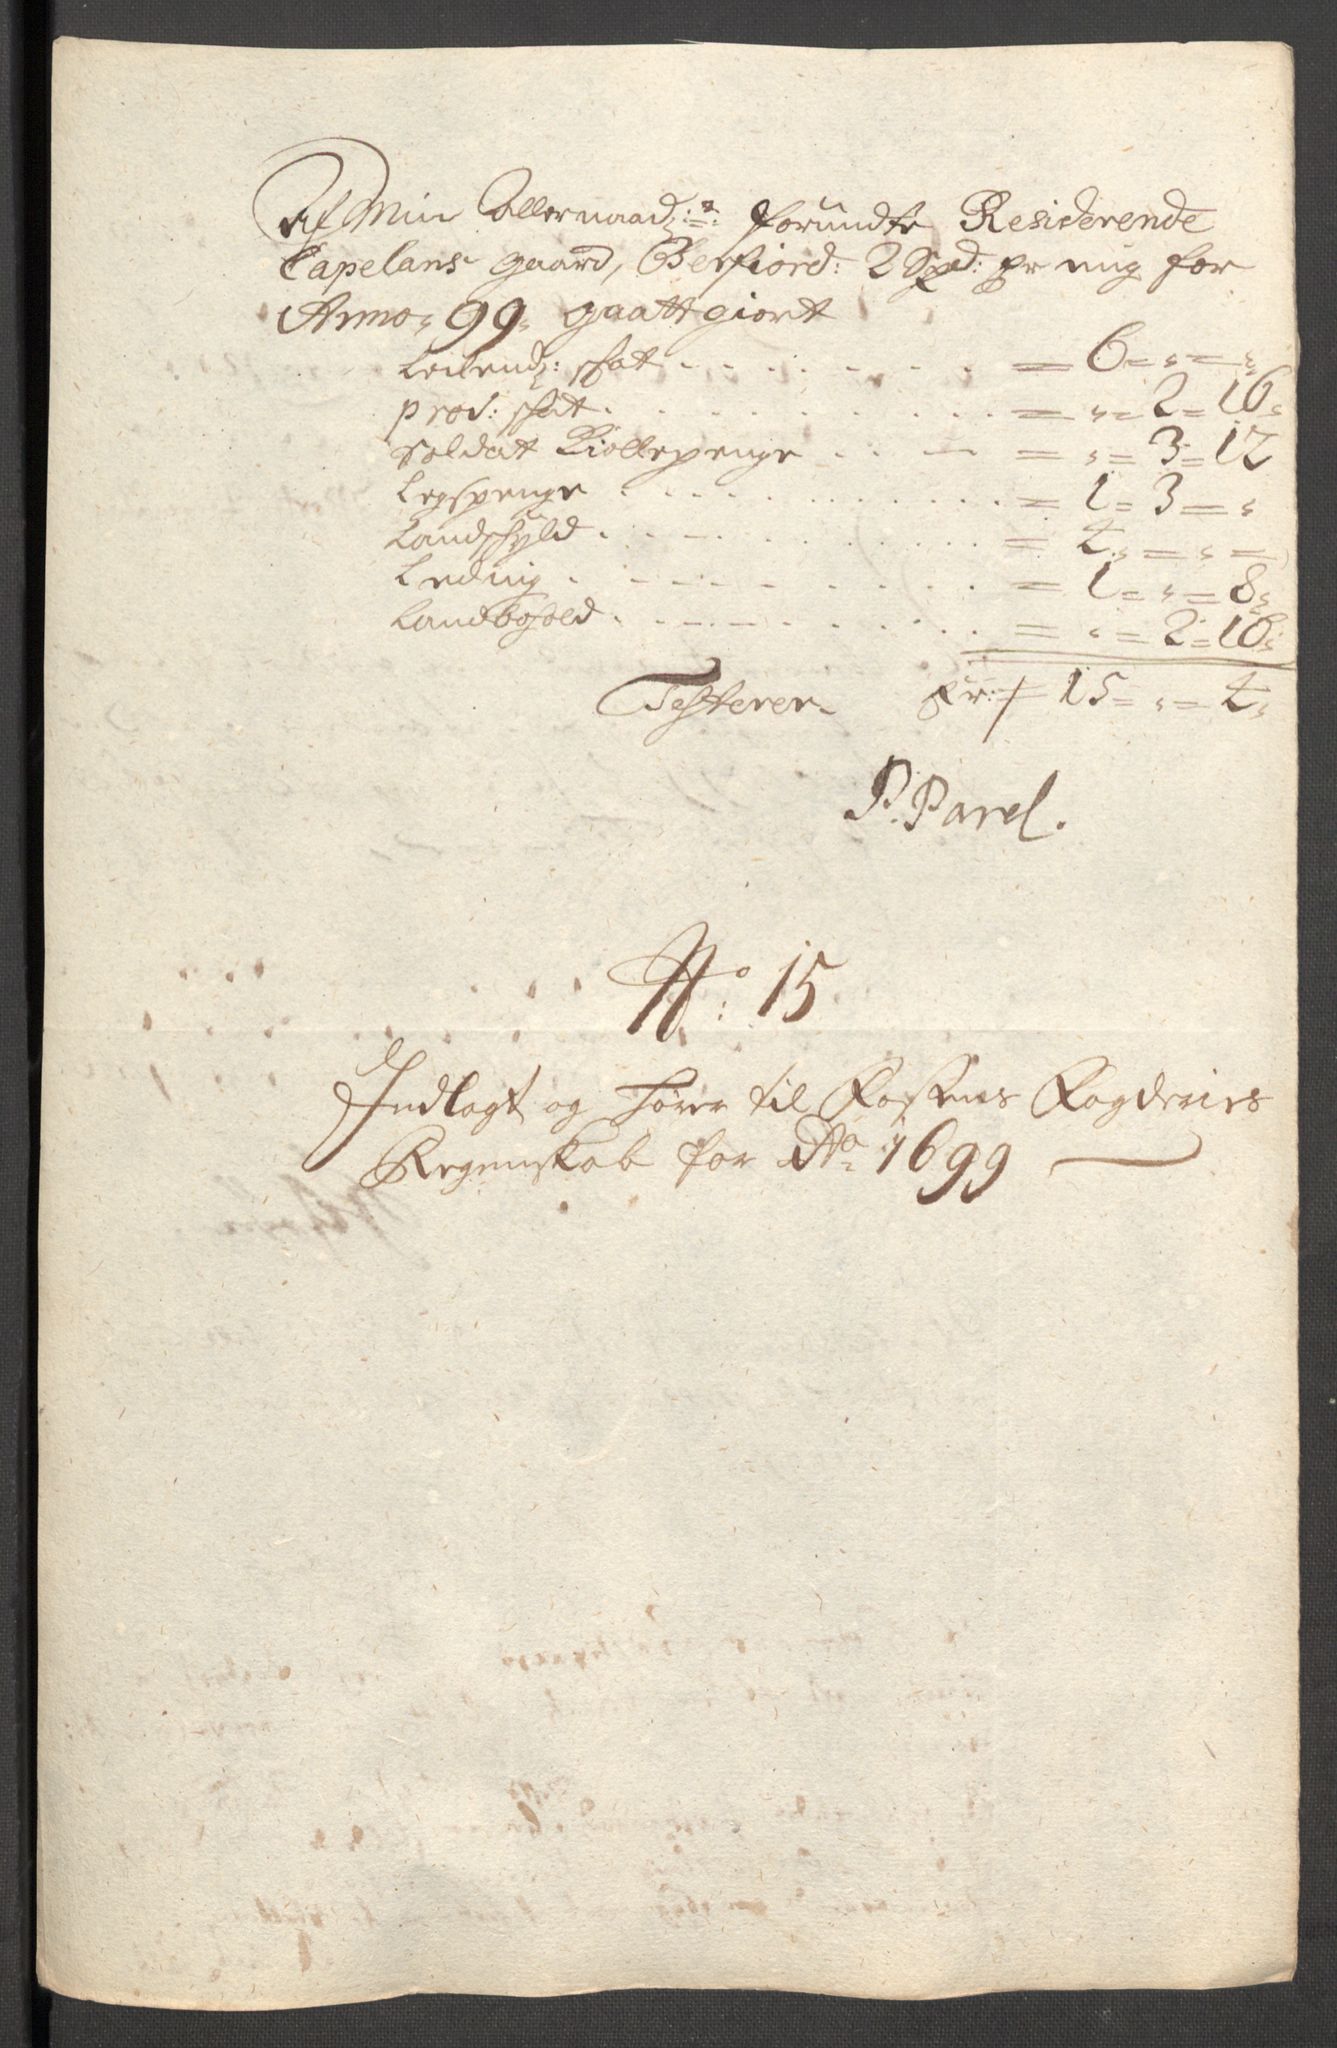 Af Min Allernaad: forundte Residerende
Capelans gaard, Berfiord: 2 Spd: er mig for
Anno 99 gaatt giort
Leilend: skat = 6 = =
prov: skat = = 2 = 16
Soldat Kiollepenge = = 3 = 12
Legspenge = 1 = 3 =
Landschyld = 4 = =
Leding = 1 = = 8
Landbohold = = 2 = 16
Testerer 15 = = 4
P. Parel.
No: 15
Indlagt og hører til Fossens Fogderies
Regenskab for Ao 1699